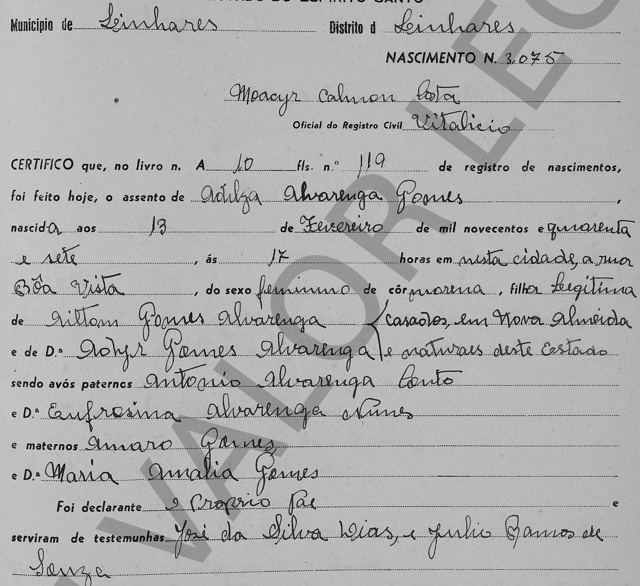 ESPÍRITO SANTO
Municipio de Linhares Distrito d Linhares
NASCIMENTO N. 3.075
Moacyr Calmon Costa
Oficial do Registro Civil Vitalicio
CERTIFICO que, no livro n. A 10 fls. n.º 119 de registro de nascimentos,
foi feito hoje, o assento de Adilza Alvarenga Gomes ,
nascida aos 13 de Fevereiro de mil novecentos e quarenta
e sete , ás 17 horas em nesta cidade, a rua
Bôa Vista , do sexo feminino de côr morena, filha legitima
de Ailtom Gomes Alvarenga casados, em Nova Almeida
e de D.ª Adyr Gomes Alvarenga e naturaes deste Estado
sendo avós paternos Antonio Alvarenga Couto
e D.ª Eufrosina Alvarenga Nunes
e maternos Amaro Gomes
e D.ª Maria Amalia Gomes
Foi declarante o Proprio Pae e
serviram de testemunhas José da Silva Dias, e Julio Ramos de
Souza
VALOR LEG